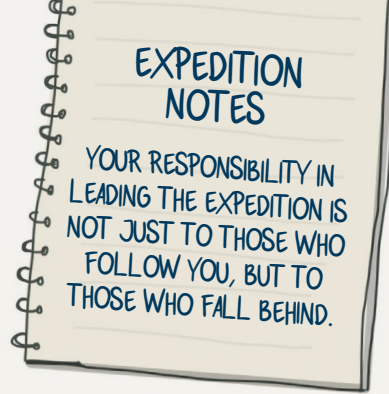 EXPEDITION
NOTES
YOUR RESPONSIBILITY IN
LEADING THE EXPEDITION IS
NOT JUST TO THOSE WHO
FOLLOW YOU, BUT TO
THOSE WHO FALL BEHIND.